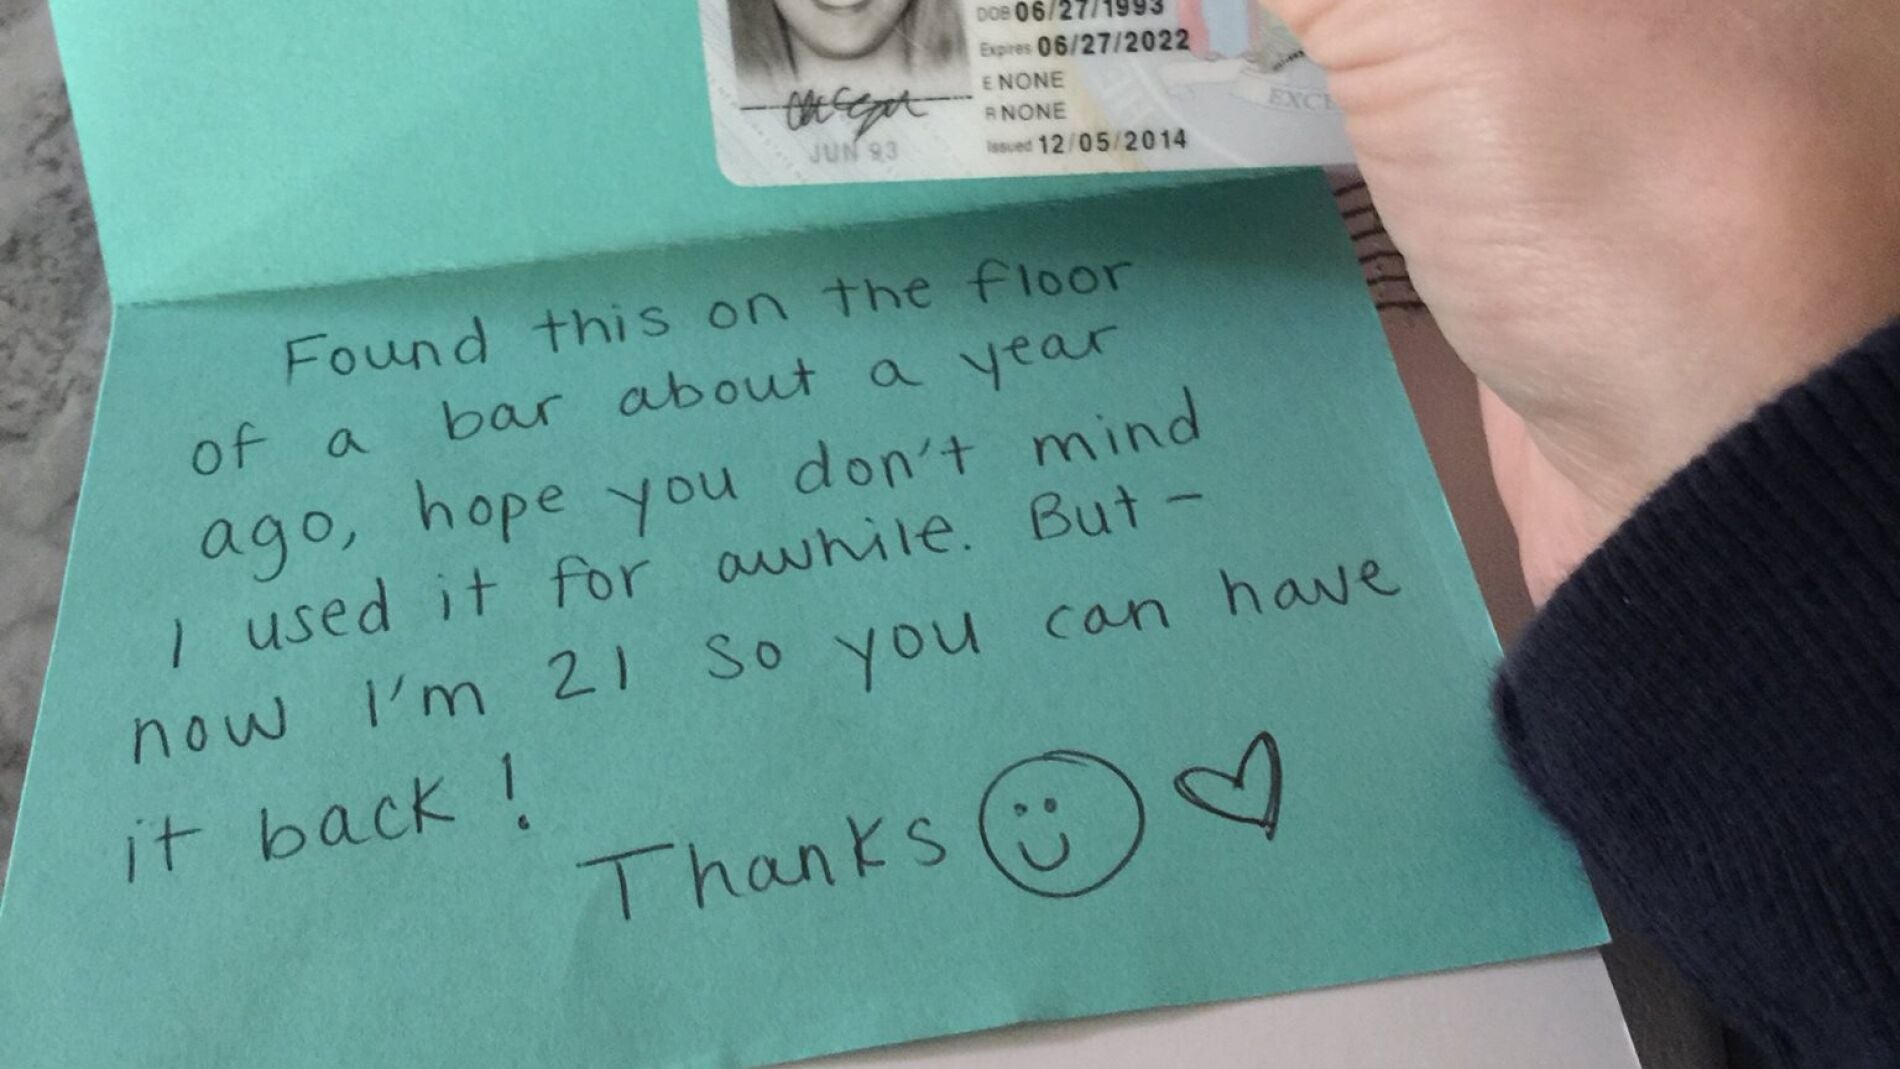 DOB 06/27/1993
Expires 06/27/2022
E NONE
R NONE
Issued 12/05/2014
JUN 93
EXC
Found this on the floor
of a bar about a year
ago, hope you don't mind
I used it for awhile. But -
now I'm 21 so you can have
it back!
Thanks